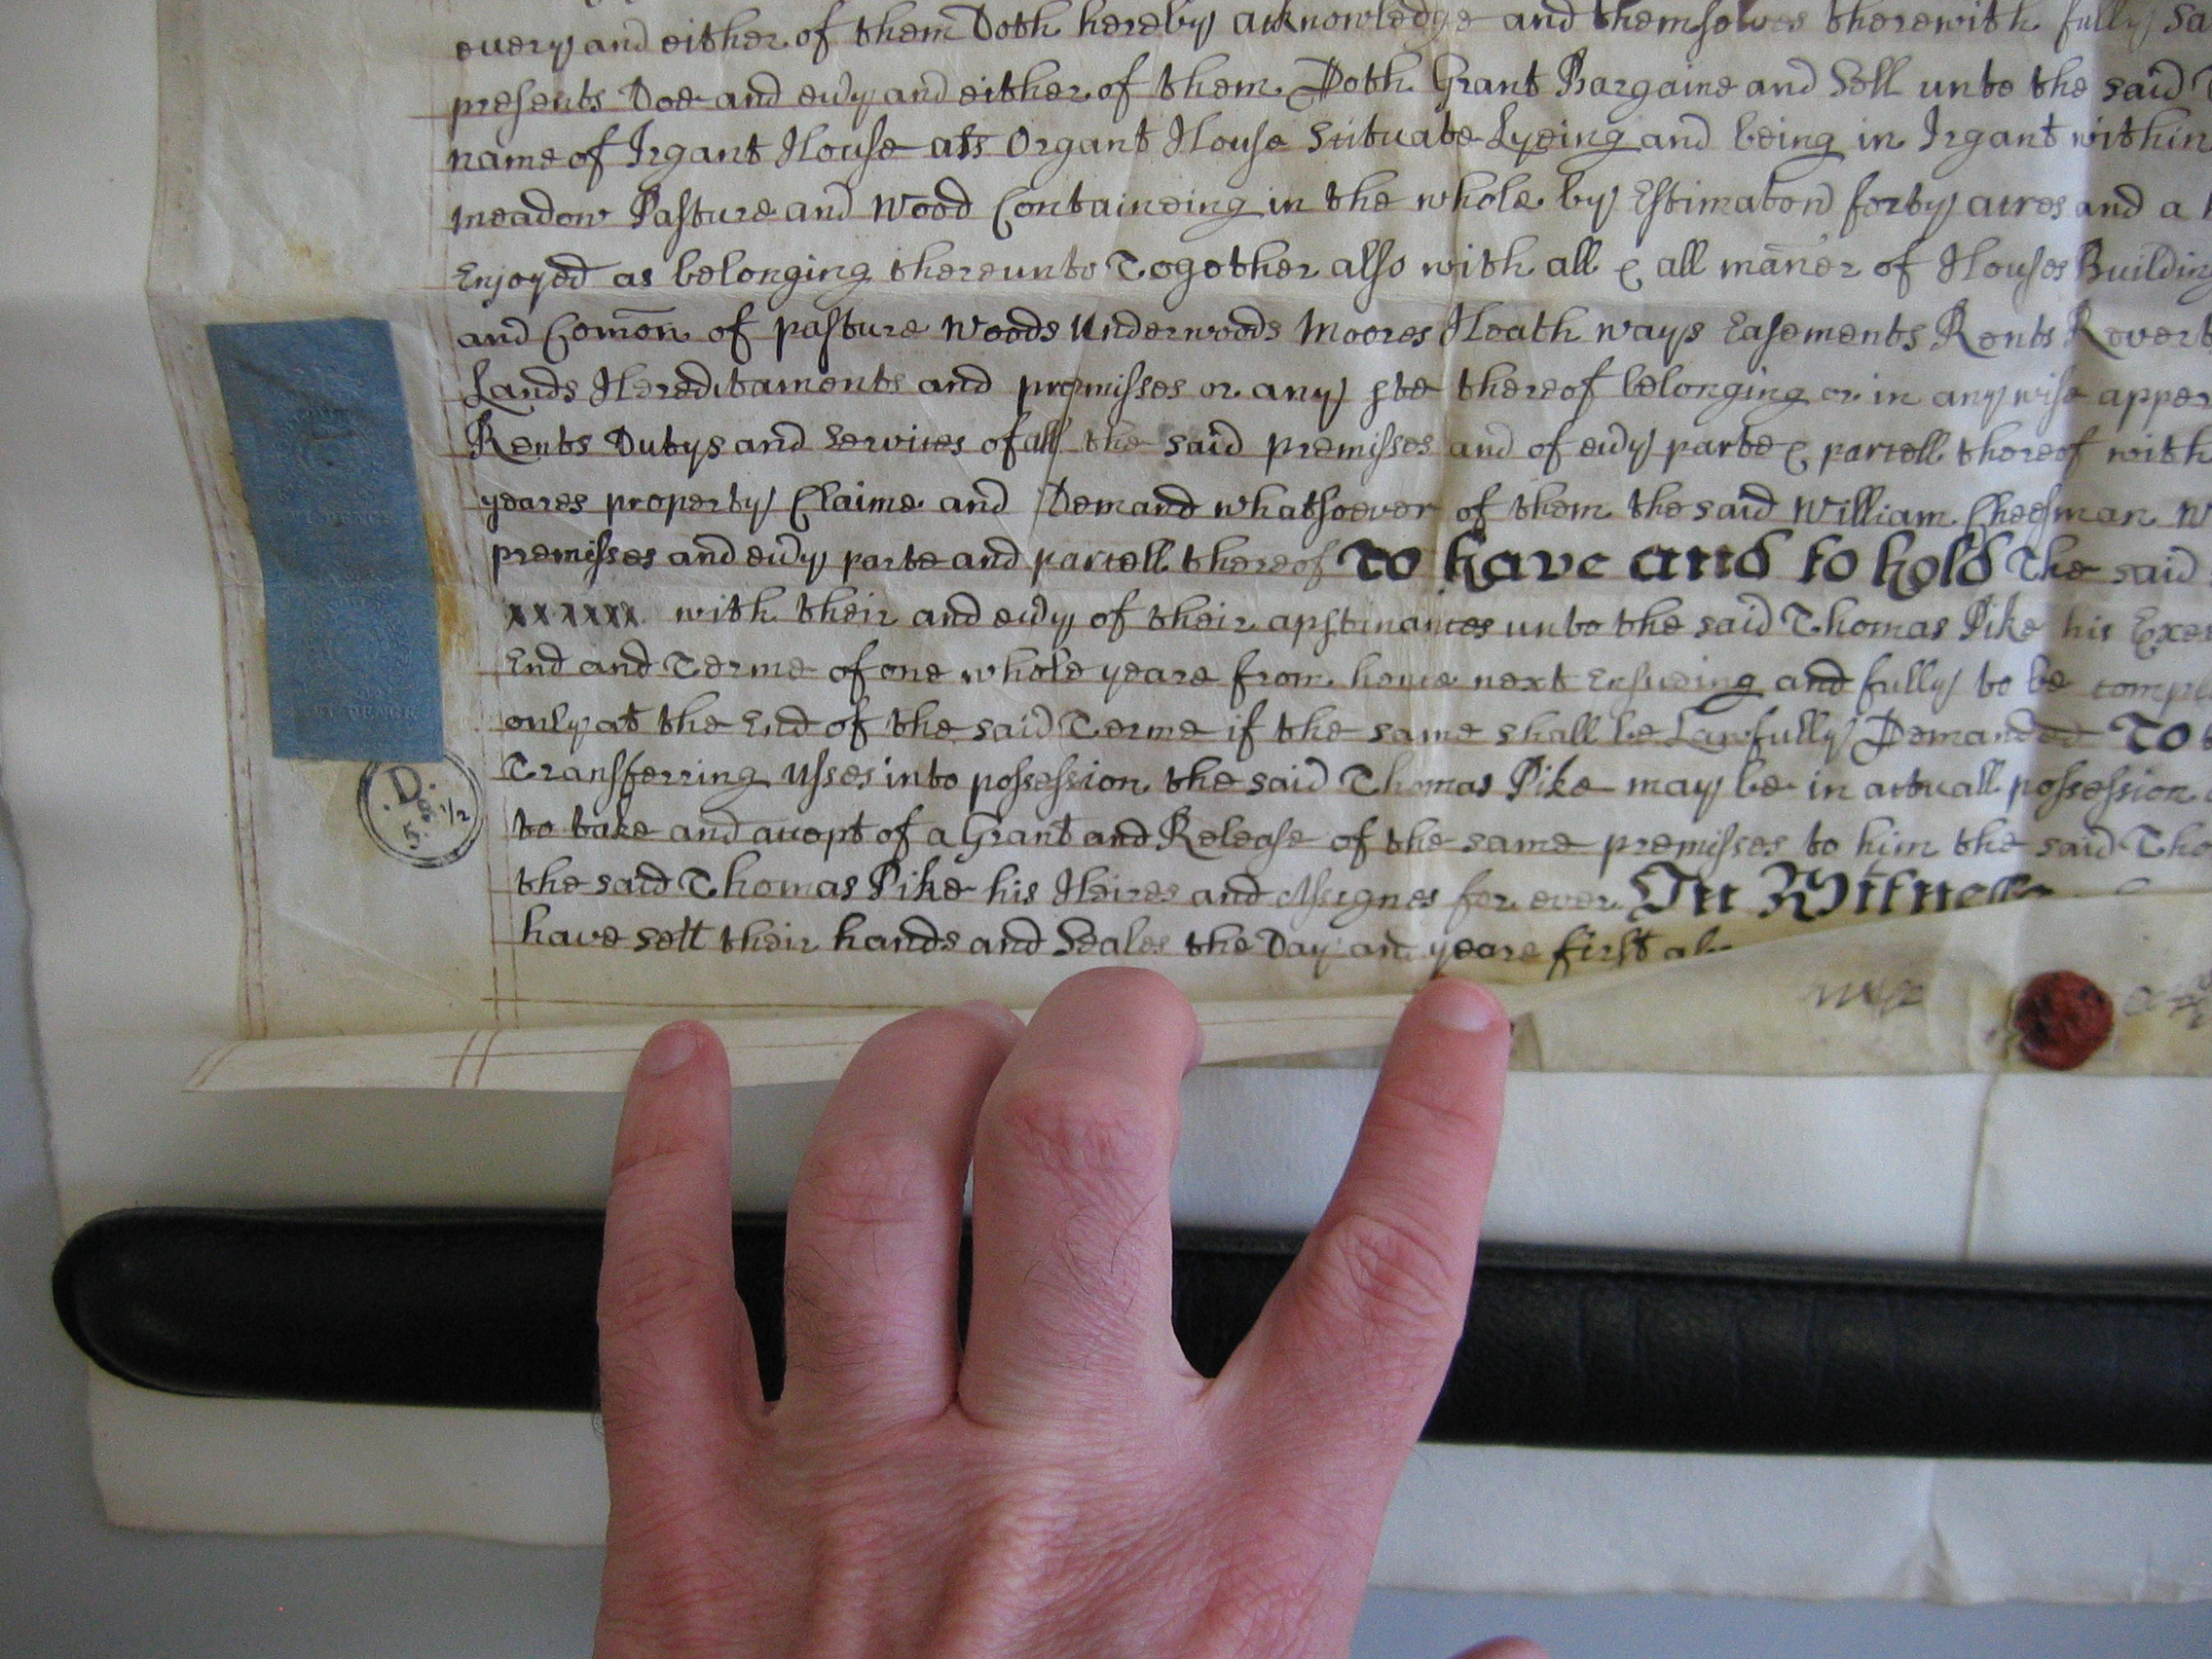 every and either of them Doth hereby acknowledge and themselves therewith fully sa
presents Doe and evy and either of them Doth Grant Bargaine and Sell unto the said T
name of Irgant House als Organt House Scituate Lyeing and being in Irgant within
meadow Pasture and Wood Containeing in the whole by Estimacon forty acres and a
Enjoyed as belonging thereunto Together also with all & all maner of Houses Building
and Comon of pasture Woods Underwoods Moores Heath ways Easements Rents Revert
Lands Hereditaments and premisses or any pte thereof belonging or in any wise apper
Rents Dutys and Services of all the said premisses and of evy parte & parcell thereof with
yeares property Claime and Demand whatsoever of them the said William Cheesman W
premisses and evy parte and parcell thereof To have and to hold The said
xxxxxx with their and evy of their aptinances unto the said Thomas Pike his Exe
End and Terme of one whole yeare from hence next Ensueing and fully to be comple
only at the End of the said Terme if the same shall be Lawfully Demanded To
Transferring Usses into possession the said Thomas Pike may be in actuall possession
to take and accept of a Grant and Release of the same premisses to him the said Tho
the said Thomas Pike his Heires and Assignes for ever In Witness
have sett their hands and Seales the Day an yeare first ab
PENCE
PENCE
D. 5.